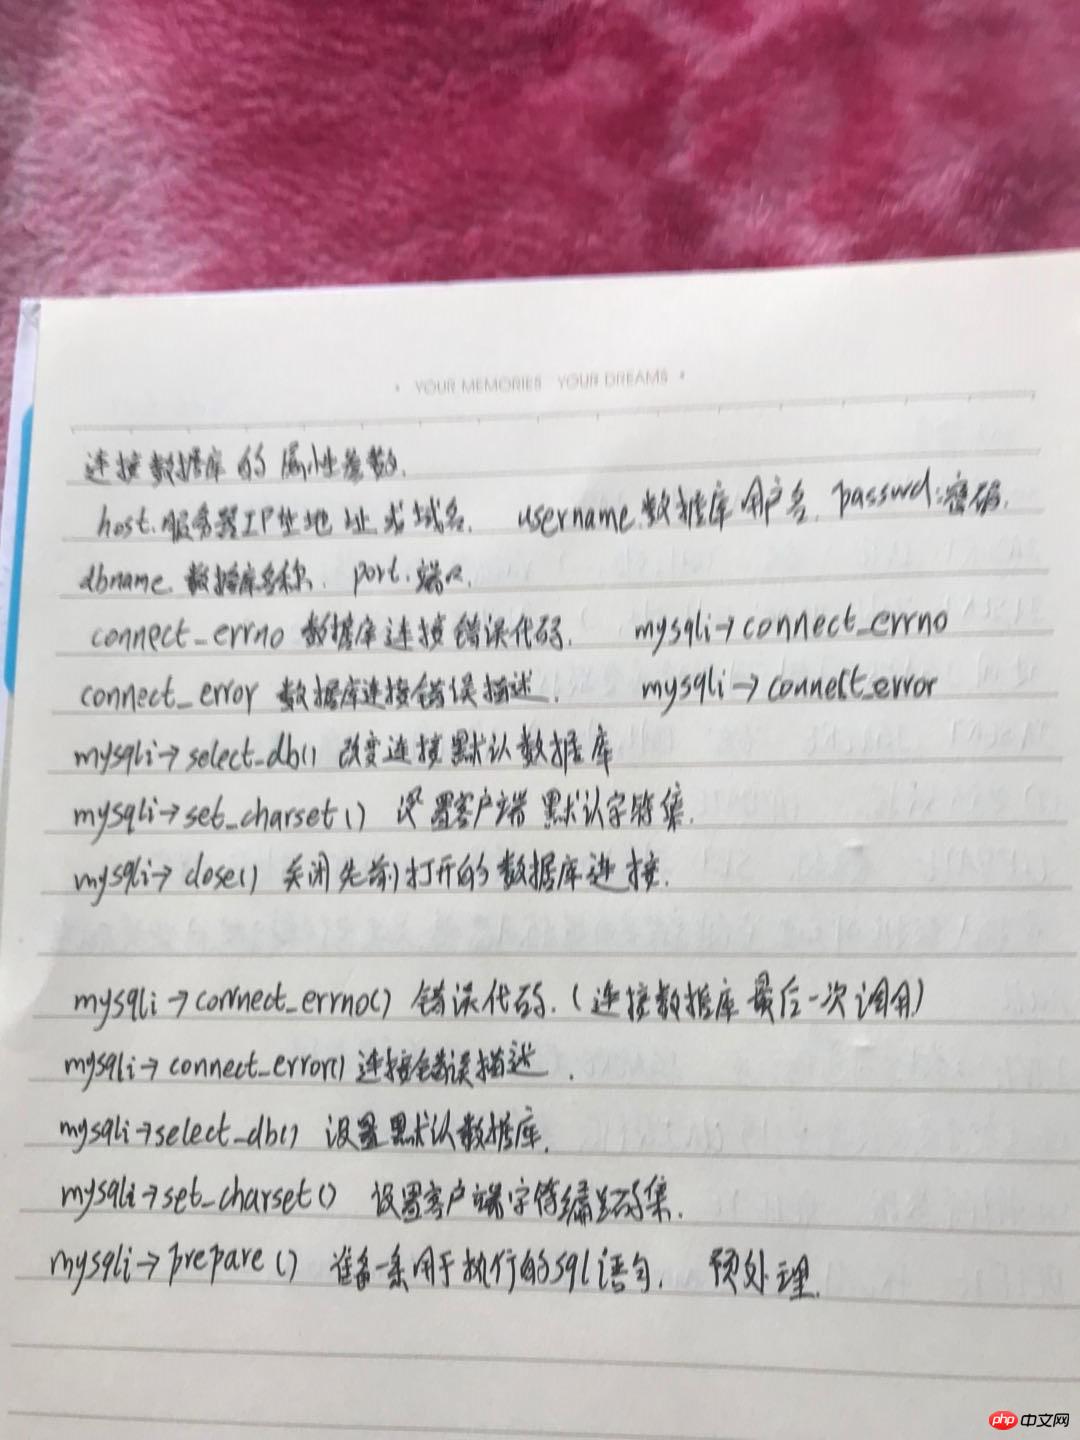 • YOUR MEMORIES YOUR DREAMS •
连接数据库的属性参数.
host.服务器IP地址或域名. username.数据库用户名. passwd:密码.
dbname.数据库名称. port.端口.
connect_errno 数据库连接错误代码. mysqli→connect_errno
connect_error 数据库连接错误描述. mysqli→connect_error
mysqli→select_db() 改变连接默认数据库
mysqli→set_charset() 设置客户端默认字符集.
mysqli→close() 关闭先前打开的数据库连接.
mysqli→connect_errno() 错误代码.(连接数据库最后一次调用)
mysqli→connect_error() 连接错误描述.
mysqli→select_db() 设置默认数据库.
mysqli→set_charset() 设置客户端字符编码集.
mysqli→prepare() 准备一条用于执行的sql语句. 预处理.
php 中文网